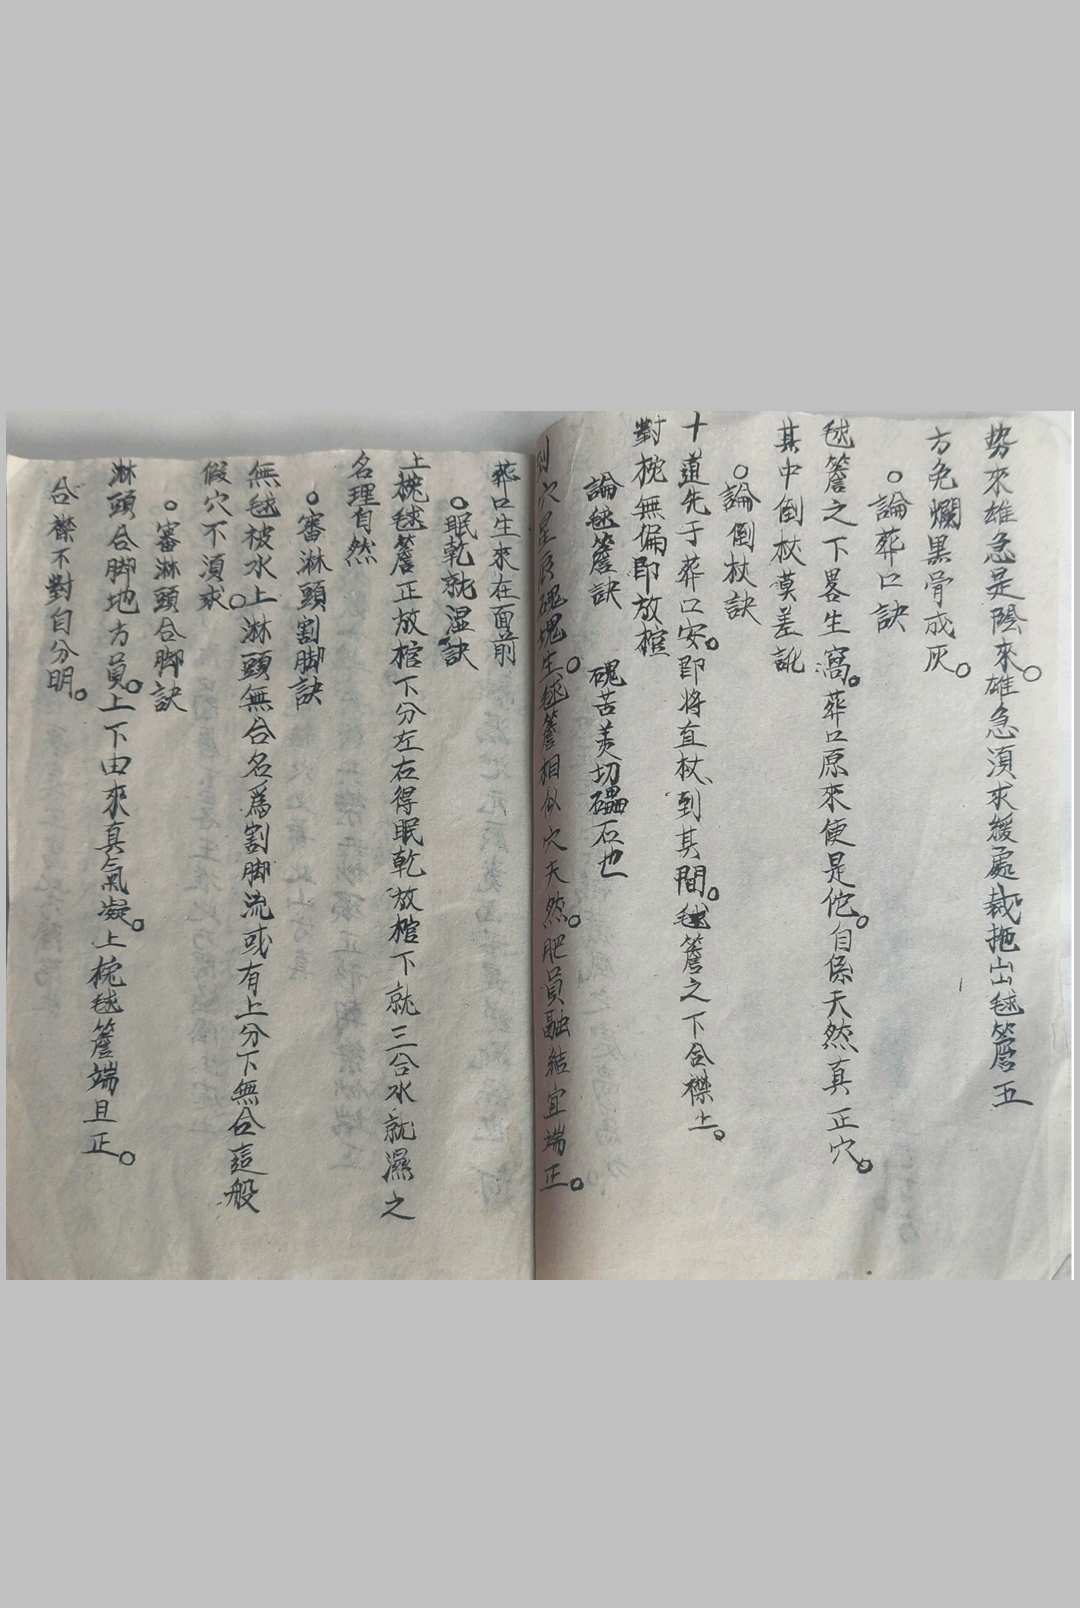 势來雄急是陰來。雄急湏求緩處裁拖出毬簷五
方免爛黒骨成灰。
○論葬口訣
毬簷之下畧生窩。葬口原來使是佗。自係天然真正穴。
其中倒杖莫差訛
○論倒杖訣
十道先于葬口安。即将直杖到其間。毬簷之下合襟上。
對枕無偏即放棺
論毬簷訣 磈苦美切礧石也
穴星辰磈塊生。毬簷相似穴天然。肥員融結宜端正。
葬口生來在面前
○眠乾就湿訣
上枕毬簷正放棺下分左右得眠乾放棺下就三合水就濕之
名理自然
○審淋頭割脚訣
無毬被水上淋頭無合名為割脚流或有上分下無合這般
假穴不湏求。
○審淋頭合脚訣
淋頭合脚地方員。上下由來真氣凝。上枕毬簷端且正。
合襟不對自分明。